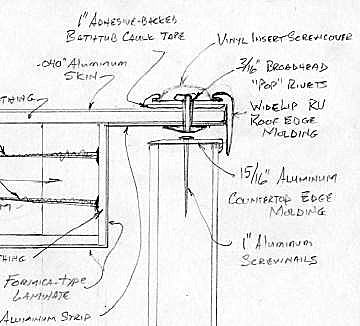 1" ADHESIVE-BACKED
BATHTUB CAULK TAPE
VINYL INSERT SCREWCOVER
.040" ALUMINUM
SKIN
3/16" BROADHEAD
"POP" RIVETS
THING
WIDELIP RV
ROOF EDGE
MOLDING
15/16" ALUMINUM
COUNTERTOP EDGE
MOLDING
M
1" ALUMINUM
SCREWNAILS
THING
FORMICA-TYPE
LAMINATE
ALUMINUM STRIP